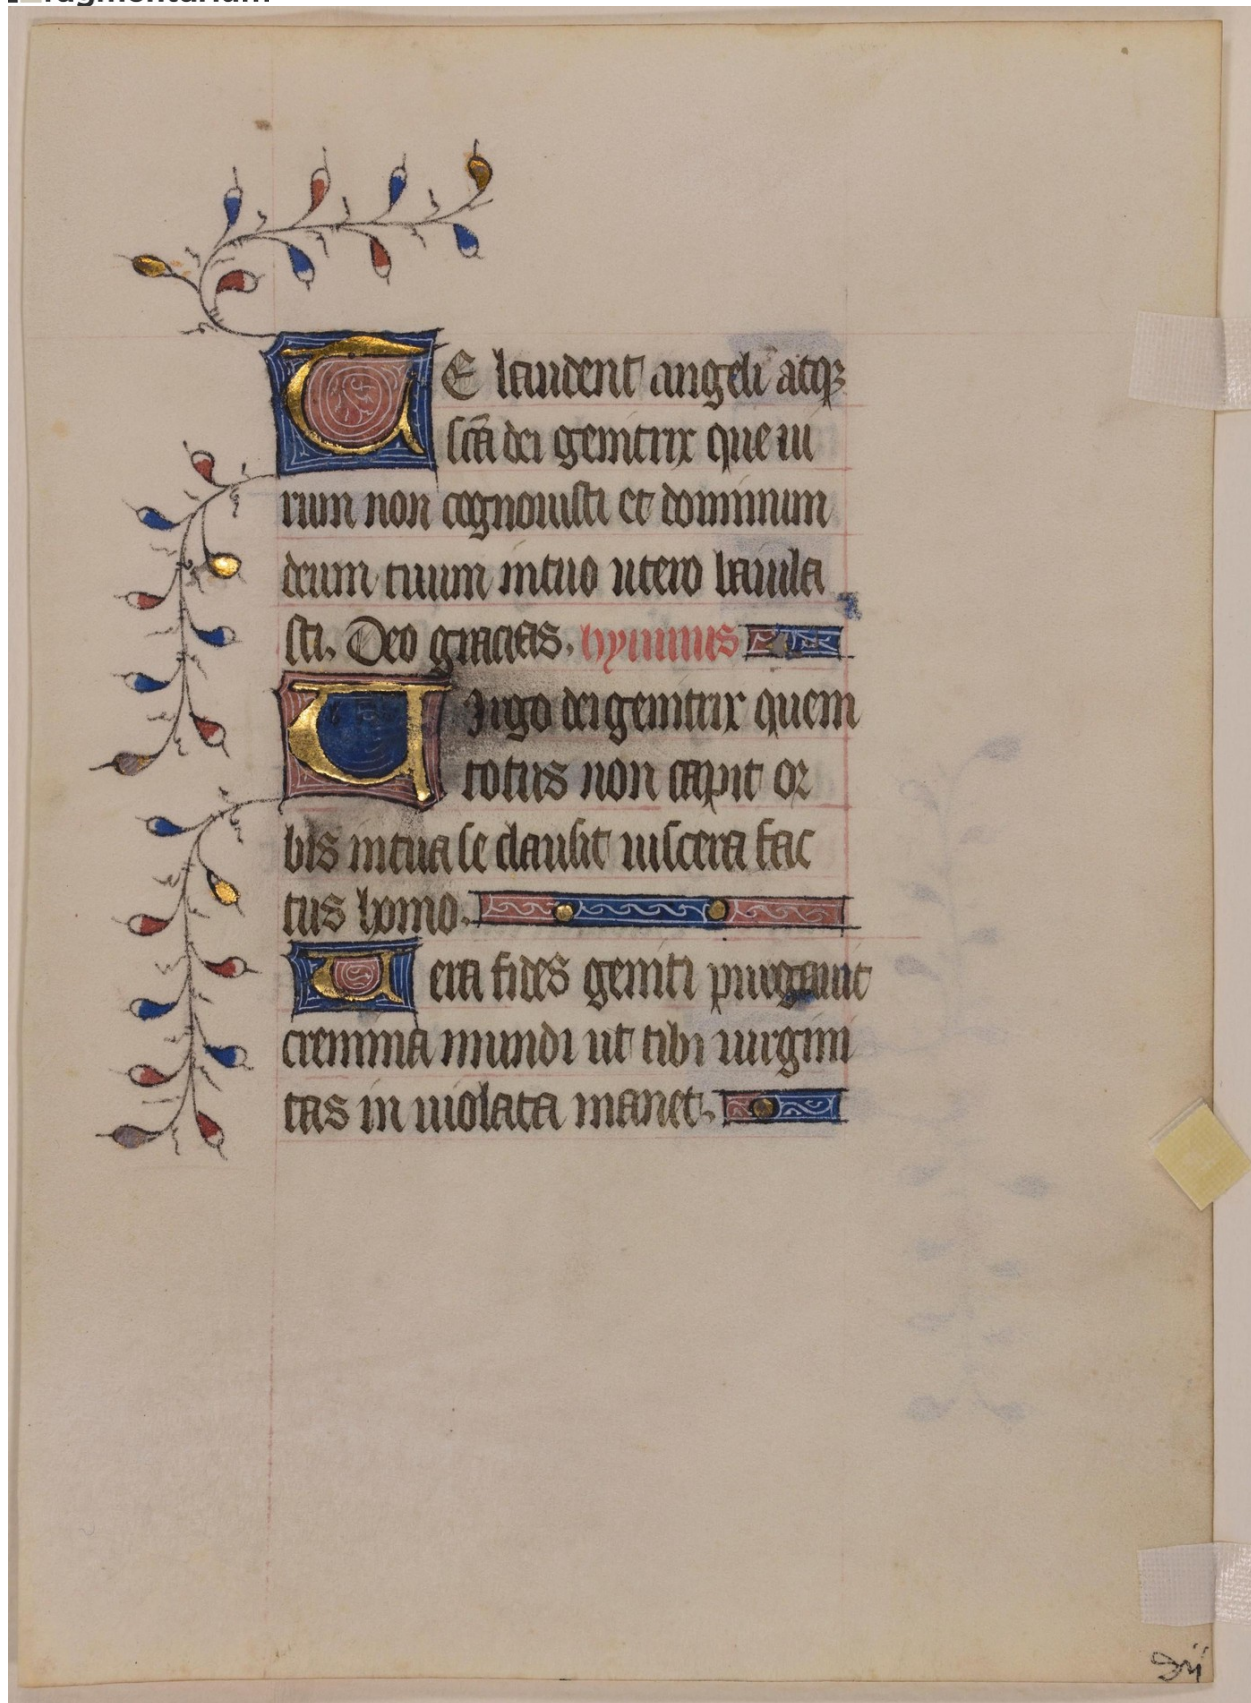 Te laudent angeli atqꝫ
scā dei genitrix que ui
rum non cognouisti et dominum
deum tuum in tuo utero baiula
sti. Deo gracias. hymnus
Uirgo dei genitrix quem
totus non capit or
bis in tua se clausit uiscera fac
tus homo.
Uera fides geniti purgauit
cremina mundi ut tibi uirgini
tas in uiolata manet.